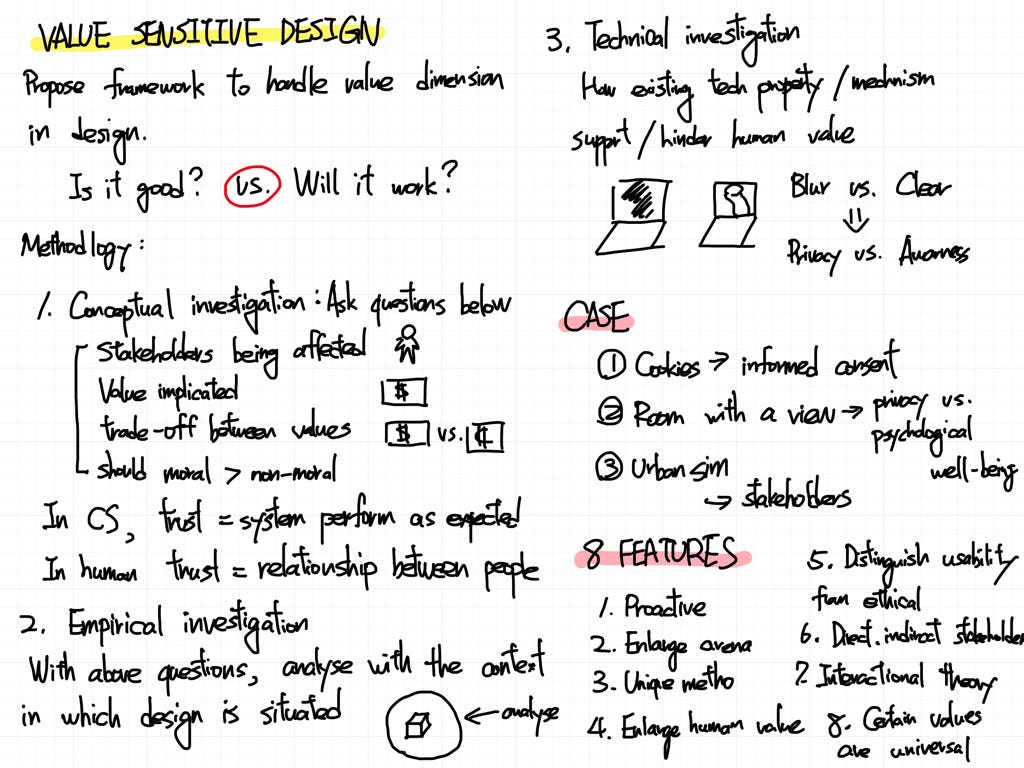 VALUE SENSITIVE DESIGN
Propose framework to handle value dimension
in design.
Is it good? vs. Will it work?
Methodlogy:
1. Conceptual investigation: Ask questions below
Stakeholders being affected
Value implicated
$
trade-off between values
$ vs. ₵
should moral > non-moral
In CS, trust = system perform as expected
In human trust = relationship between people
2. Empirical investigation
With above questions, analyse with the context
in which design is situated
← analyse
3. Technical investigation
How existing tech property/mechnism
support/hinder human value
Blur vs. Clear
⇓
Privacy vs. Awarness
CASE
① Cookies → informed consent
② Room with a view → privacy vs.
psychological
well-being
③ Urban sim
→ stakeholders
8 FEATURES
1. Proactive
2. Enlarge arena
3. Unique metho
4. Enlarge human value
5. Distinguish usability
from ethical
6. Direct. indirect stakeholder
7. Interactional theory
8. Certain values
are universal